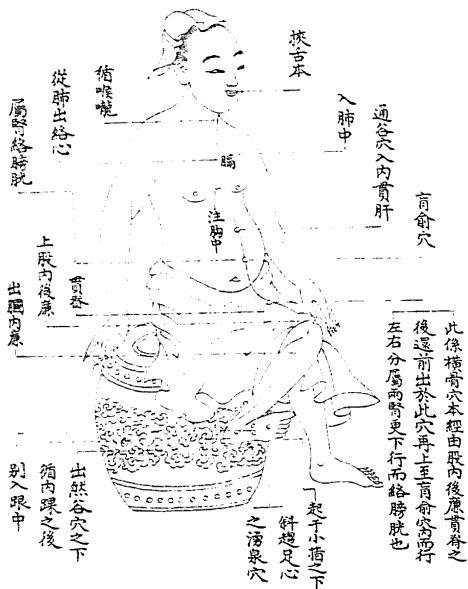 挾舌本
入肺中
通谷穴入內貫肝
肓俞穴
循喉嚨
從肺出絡心
屬腎絡膀胱
膈
注胸中
貫脊
上股內後廉
出膕內廉
此係橫骨穴本經由股內後廉貫脊之
後還前出於此穴再上至肓俞穴內而行
左右分屬兩腎更下行而絡膀胱也
起于小指之下
斜趨足心
之湧泉穴
出然谷穴之下
循內踝之後
別入跟中